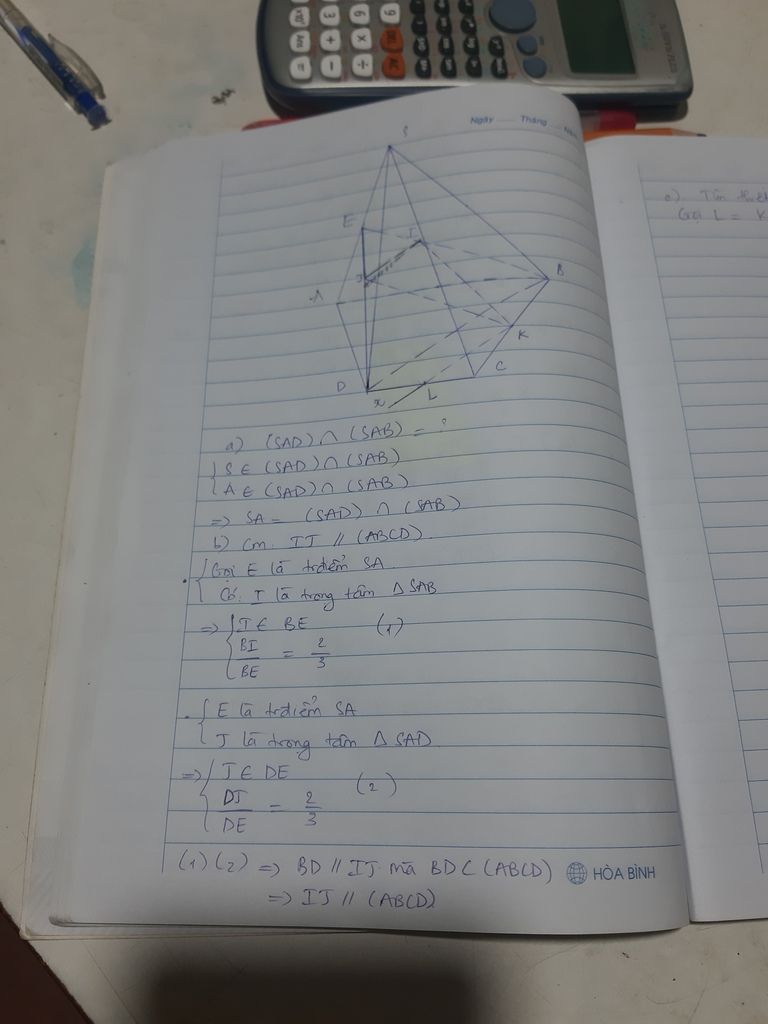 Ngày Tháng
S
E
I
J
A
B
K
D
C
x
L
a) (SAD) ∩ (SAB) = ?
{ S ∈ (SAD) ∩ (SAB)
A ∈ (SAD) ∩ (SAB)
=> SA = (SAD) ∩ (SAB)
b) Cm. IJ // (ABCD).
. { Gọi E là trđiểm SA
Có: I là trọng tâm Δ SAB
=> { I ∈ BE (1)
BI/BE = 2/3
. { E là trđiểm SA
J là trọng tâm Δ SAD
=> { J ∈ DE (2)
DJ/DE = 2/3
(1) (2) => BD // IJ mà BD ⊂ (ABCD)
=> IJ // (ABCD)
HÒA BÌNH
c) Tìm
Gọi L = K